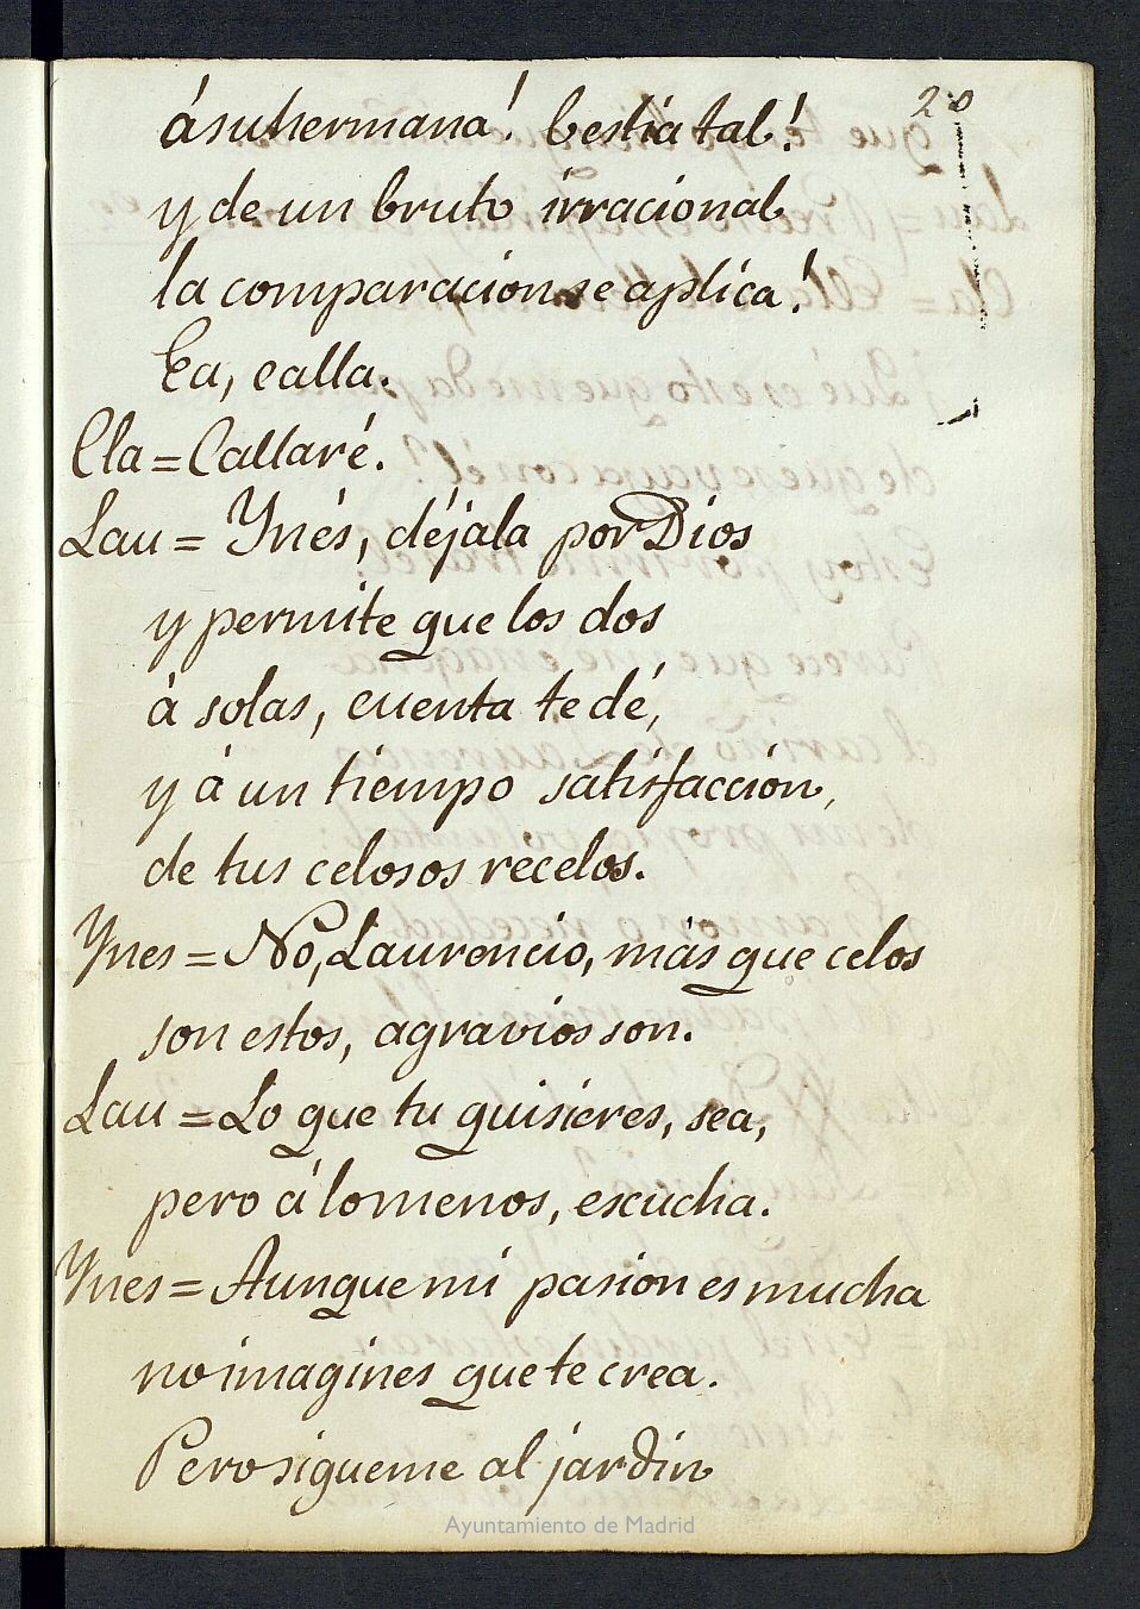 20
á su hermana! bestia tal!
y de un bruto irracional
la comparacion se aplica!
Ea, calla.
Cla = Callaré.
Lau = Ynés, déjala por Dios
y permite que los dos
á solas, cuenta te dé,
y á un tiempo satisfaccion,
de tus celosos recelos.
Ynes = No, Laurencio, más que celos
son estos, agravios son.
Lau = Lo que tu quisieres, sea,
pero á lo menos, escucha.
Ynes = Aunque mi pasion es mucha
no imagines que te crea.
Pero sigueme al jardin
Ayuntamiento de Madrid